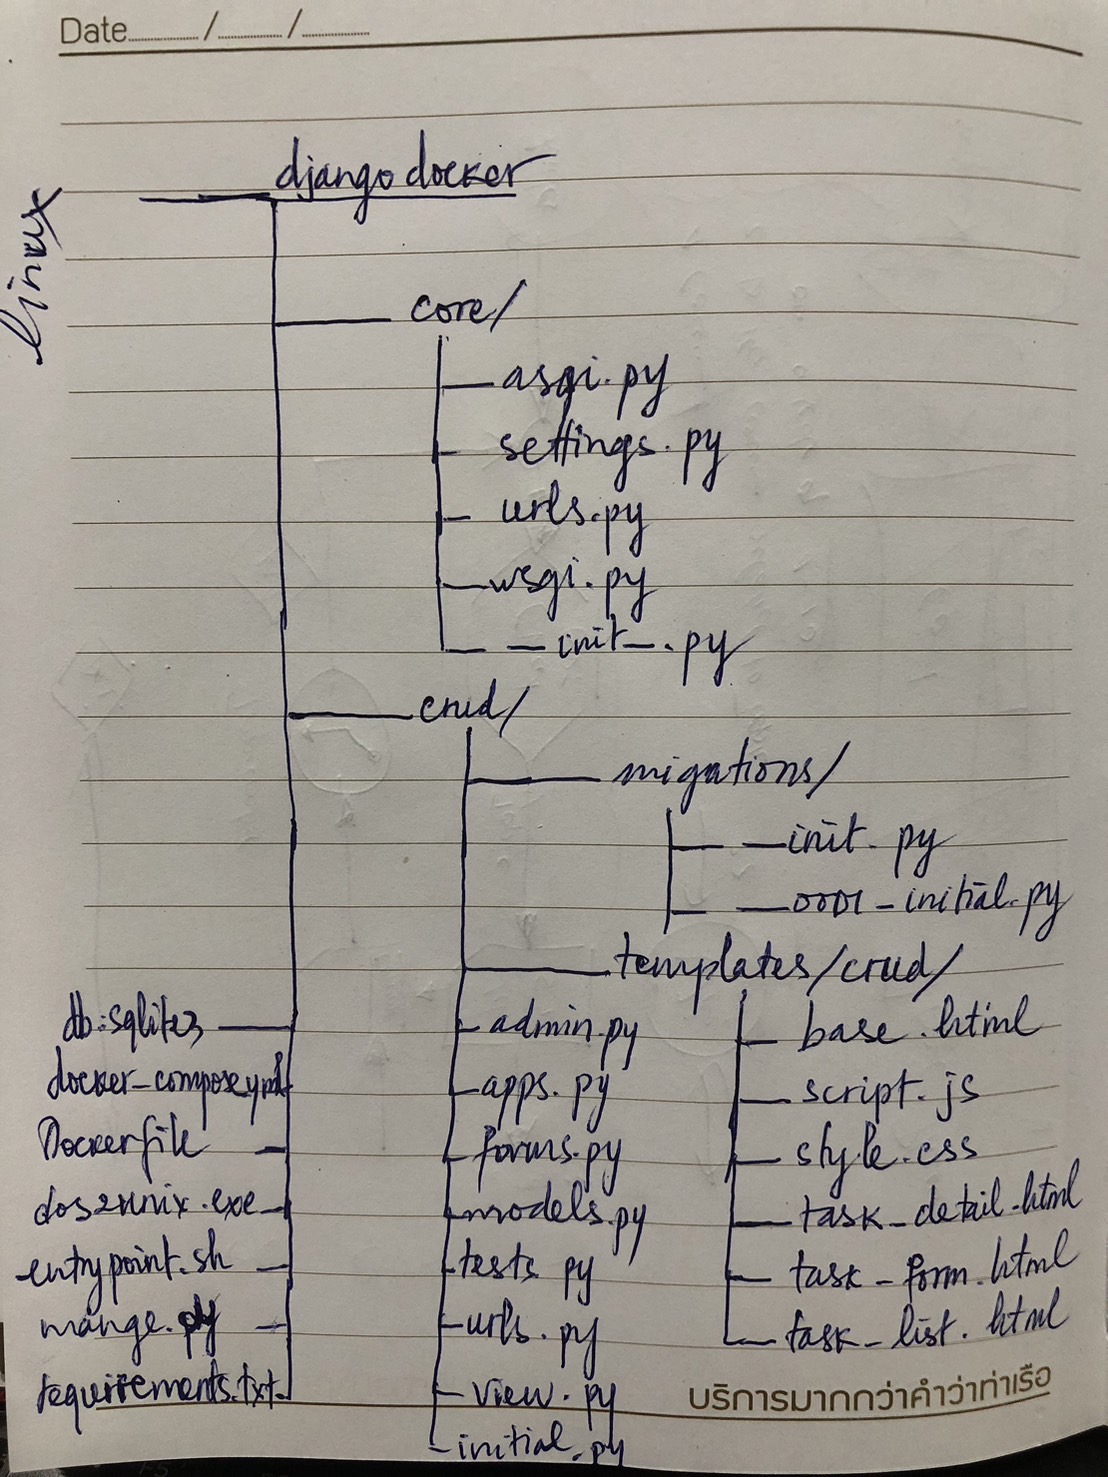 Date......../......../........
linux
django docker
core/
asgi.py
settings.py
urls.py
wsgi.py
—init—.py
crud/
migations/
—init.py
—0001_initial.py
templates/crud/
db.sqlite3
admin.py
base.html
docker-compose.yml
apps.py
script.js
Dockerfile
forms.py
style.css
dos2unix.exe
models.py
task_detail.html
entrypoint.sh
tests py
task_form.html
mange.py
urls.py
task_list.html
requirements.txt
view.py
initial.py
บริการมากกว่าคำว่าท่าเรือ